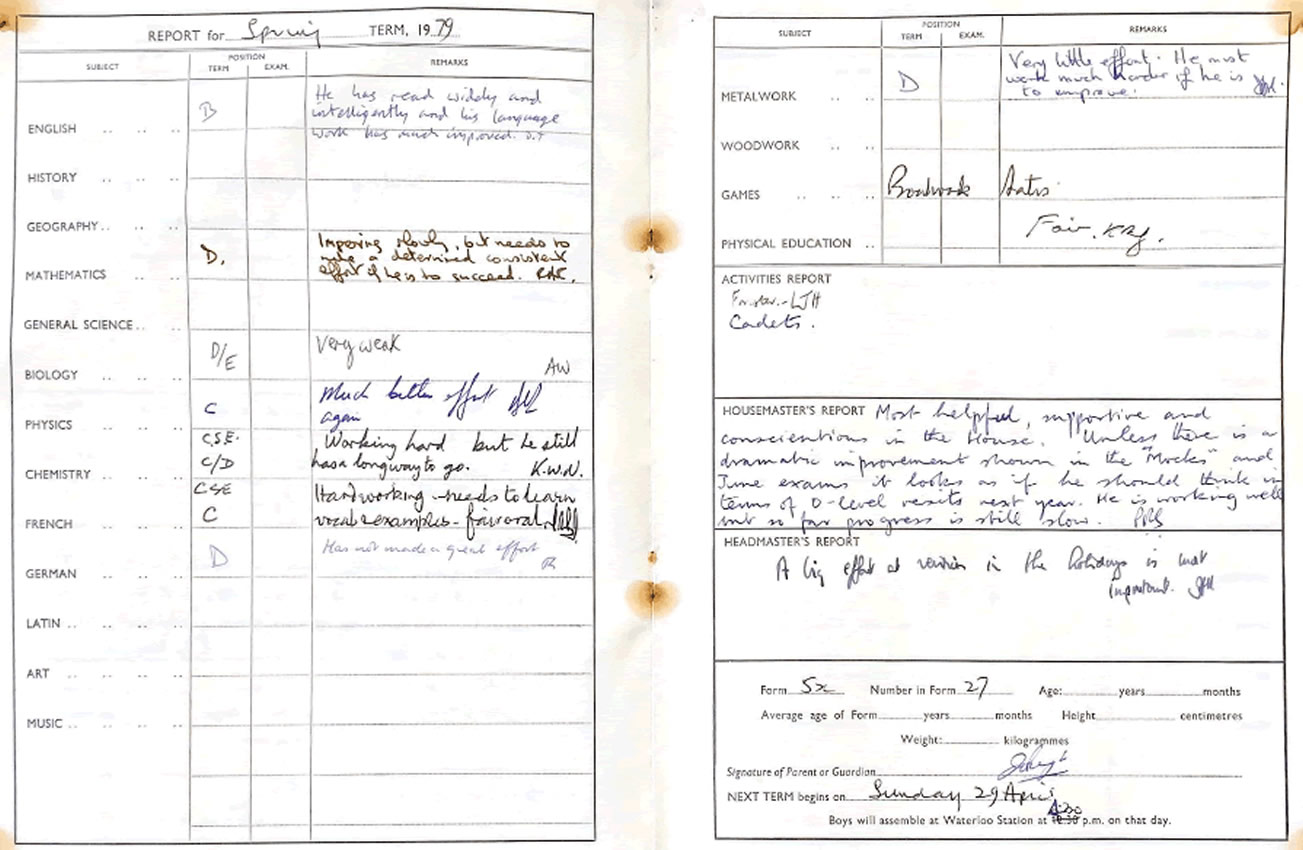 REPORT for Spring TERM, 1979
SUBJECT POSITION REMARKS
TERM EXAM.
ENGLISH B He has read widely and
intelligently and his language
work has much improved. D.T
HISTORY
GEOGRAPHY
MATHEMATICS D. Improving slowly, but needs to
make a determined consistent
effort if he is to succeed.
GENERAL SCIENCE
BIOLOGY D/E Very weak
AW
PHYSICS C Much better effort
again
CHEMISTRY CSE. C/D Working hard but he still
has a long way to go. K.W.N.
FRENCH CSE C Hardworking - needs to learn
vocab & examples - fair oral
GERMAN D Has not made a great effort
LATIN
ART
MUSIC
SUBJECT POSITION REMARKS
TERM EXAM.
METALWORK D Very little effort. He must
work much harder if he is
to improve.
WOODWORK
GAMES
PHYSICAL EDUCATION Fair.
ACTIVITIES REPORT
LJH
Cadets.
HOUSEMASTER'S REPORT Most helpful, supportive and
conscientious in the House. Unless there is a
dramatic improvement shown in the "Mocks" and
June exams it looks as if he should think in
terms of O-level resits next year. He is working well
but so far progress is still slow.
HEADMASTER'S REPORT
A big effort at revision in the holidays is most
important.
Form 5x Number in Form 27 Age: years months
Average age of Form years months Height centimetres
Weight: kilogrammes
Signature of Parent or Guardian
NEXT TERM begins on Sunday 29 April
Boys will assemble at Waterloo Station at 4.30 p.m. on that day.